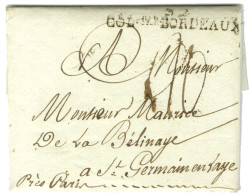 COL. PAR BORDEAUX
A Monsieur
Monsieur Maurice
De La Bélinaye
a St Germainenlaye
Près Paris